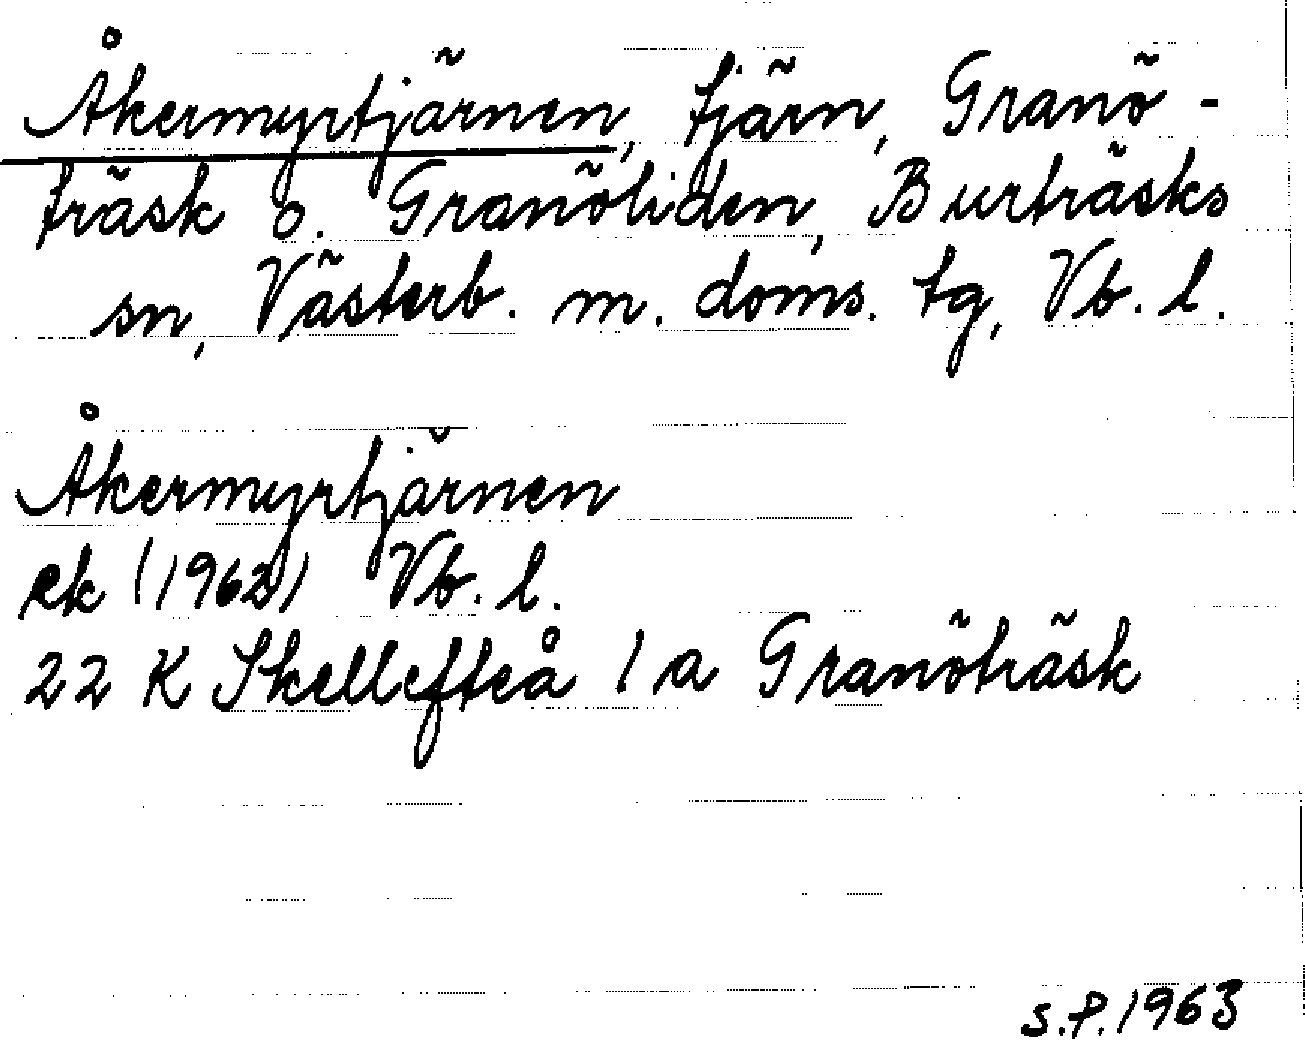 Åkermyrtjärnen, tjärn, Granö-
träsk o. Granöliden, Burträsks
sn, Västerb. m. doms. tg, Vb. l.
Åkermyrtjärnen
ek (1962) Vb. l.
22 K Skellefteå 1 a Granöträsk
S.P. 1963